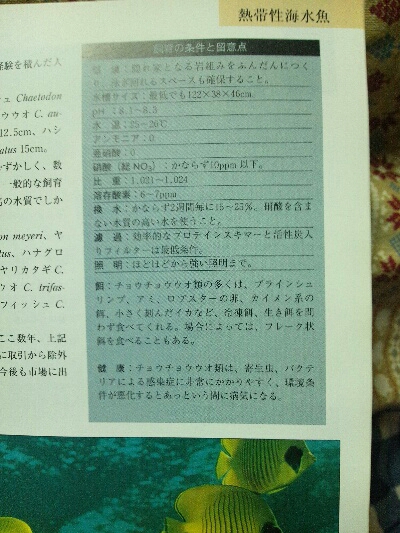 熱帯性海水魚
飼育の条件と留意点
環 境：隠れ家となる岩組みをふんだんにつく
る。泳ぎ回れるスペースも確保すること。
水槽サイズ：最低でも122×38×46cm。
pH：8.1〜8.5
水 温：25〜26℃
アンモニア：0
亜硝酸：0
硝酸（総NO₃）：かならず10ppm以下。
比 重：1.021〜1.024
溶存酸素：6〜7ppm
換 水：かならず2週間毎に15〜25%。硝酸を含ま
ない水質の高い水を使うこと。
濾 過：効率的なプロテインスキマーと活性炭入
りフィルターは最低条件。
照 明：ほどほどから強い照明まで。
餌：チョウチョウウオ類の多くは、ブラインシュ
リンプ、アミ、ロブスターの卵、カイメン系の
餌、小さく刻んだイカなど、冷凍餌、生き餌を問
わず食べてくれる。場合によっては、フレーク状
餌を食べることもある。
健 康：チョウチョウウオ類は、寄生虫、バクテ
リアによる感染症に非常にかかりやすく、環境条
件が悪化するとあっという間に病気になる。
経験を積んだ人
ュ Chaetodon
ウウオ C. au-
12.5cm、ハシ
alus 15cm。
ずかしく、数
一般的な飼育
高の水質でしか
on meyeri、ヤ
tus、ハナグロ
ヤリカタギ C.
ウオ C. trifas-
フィッシュ C.
ここ数年、上記
に取引から除外
今後も市場に出